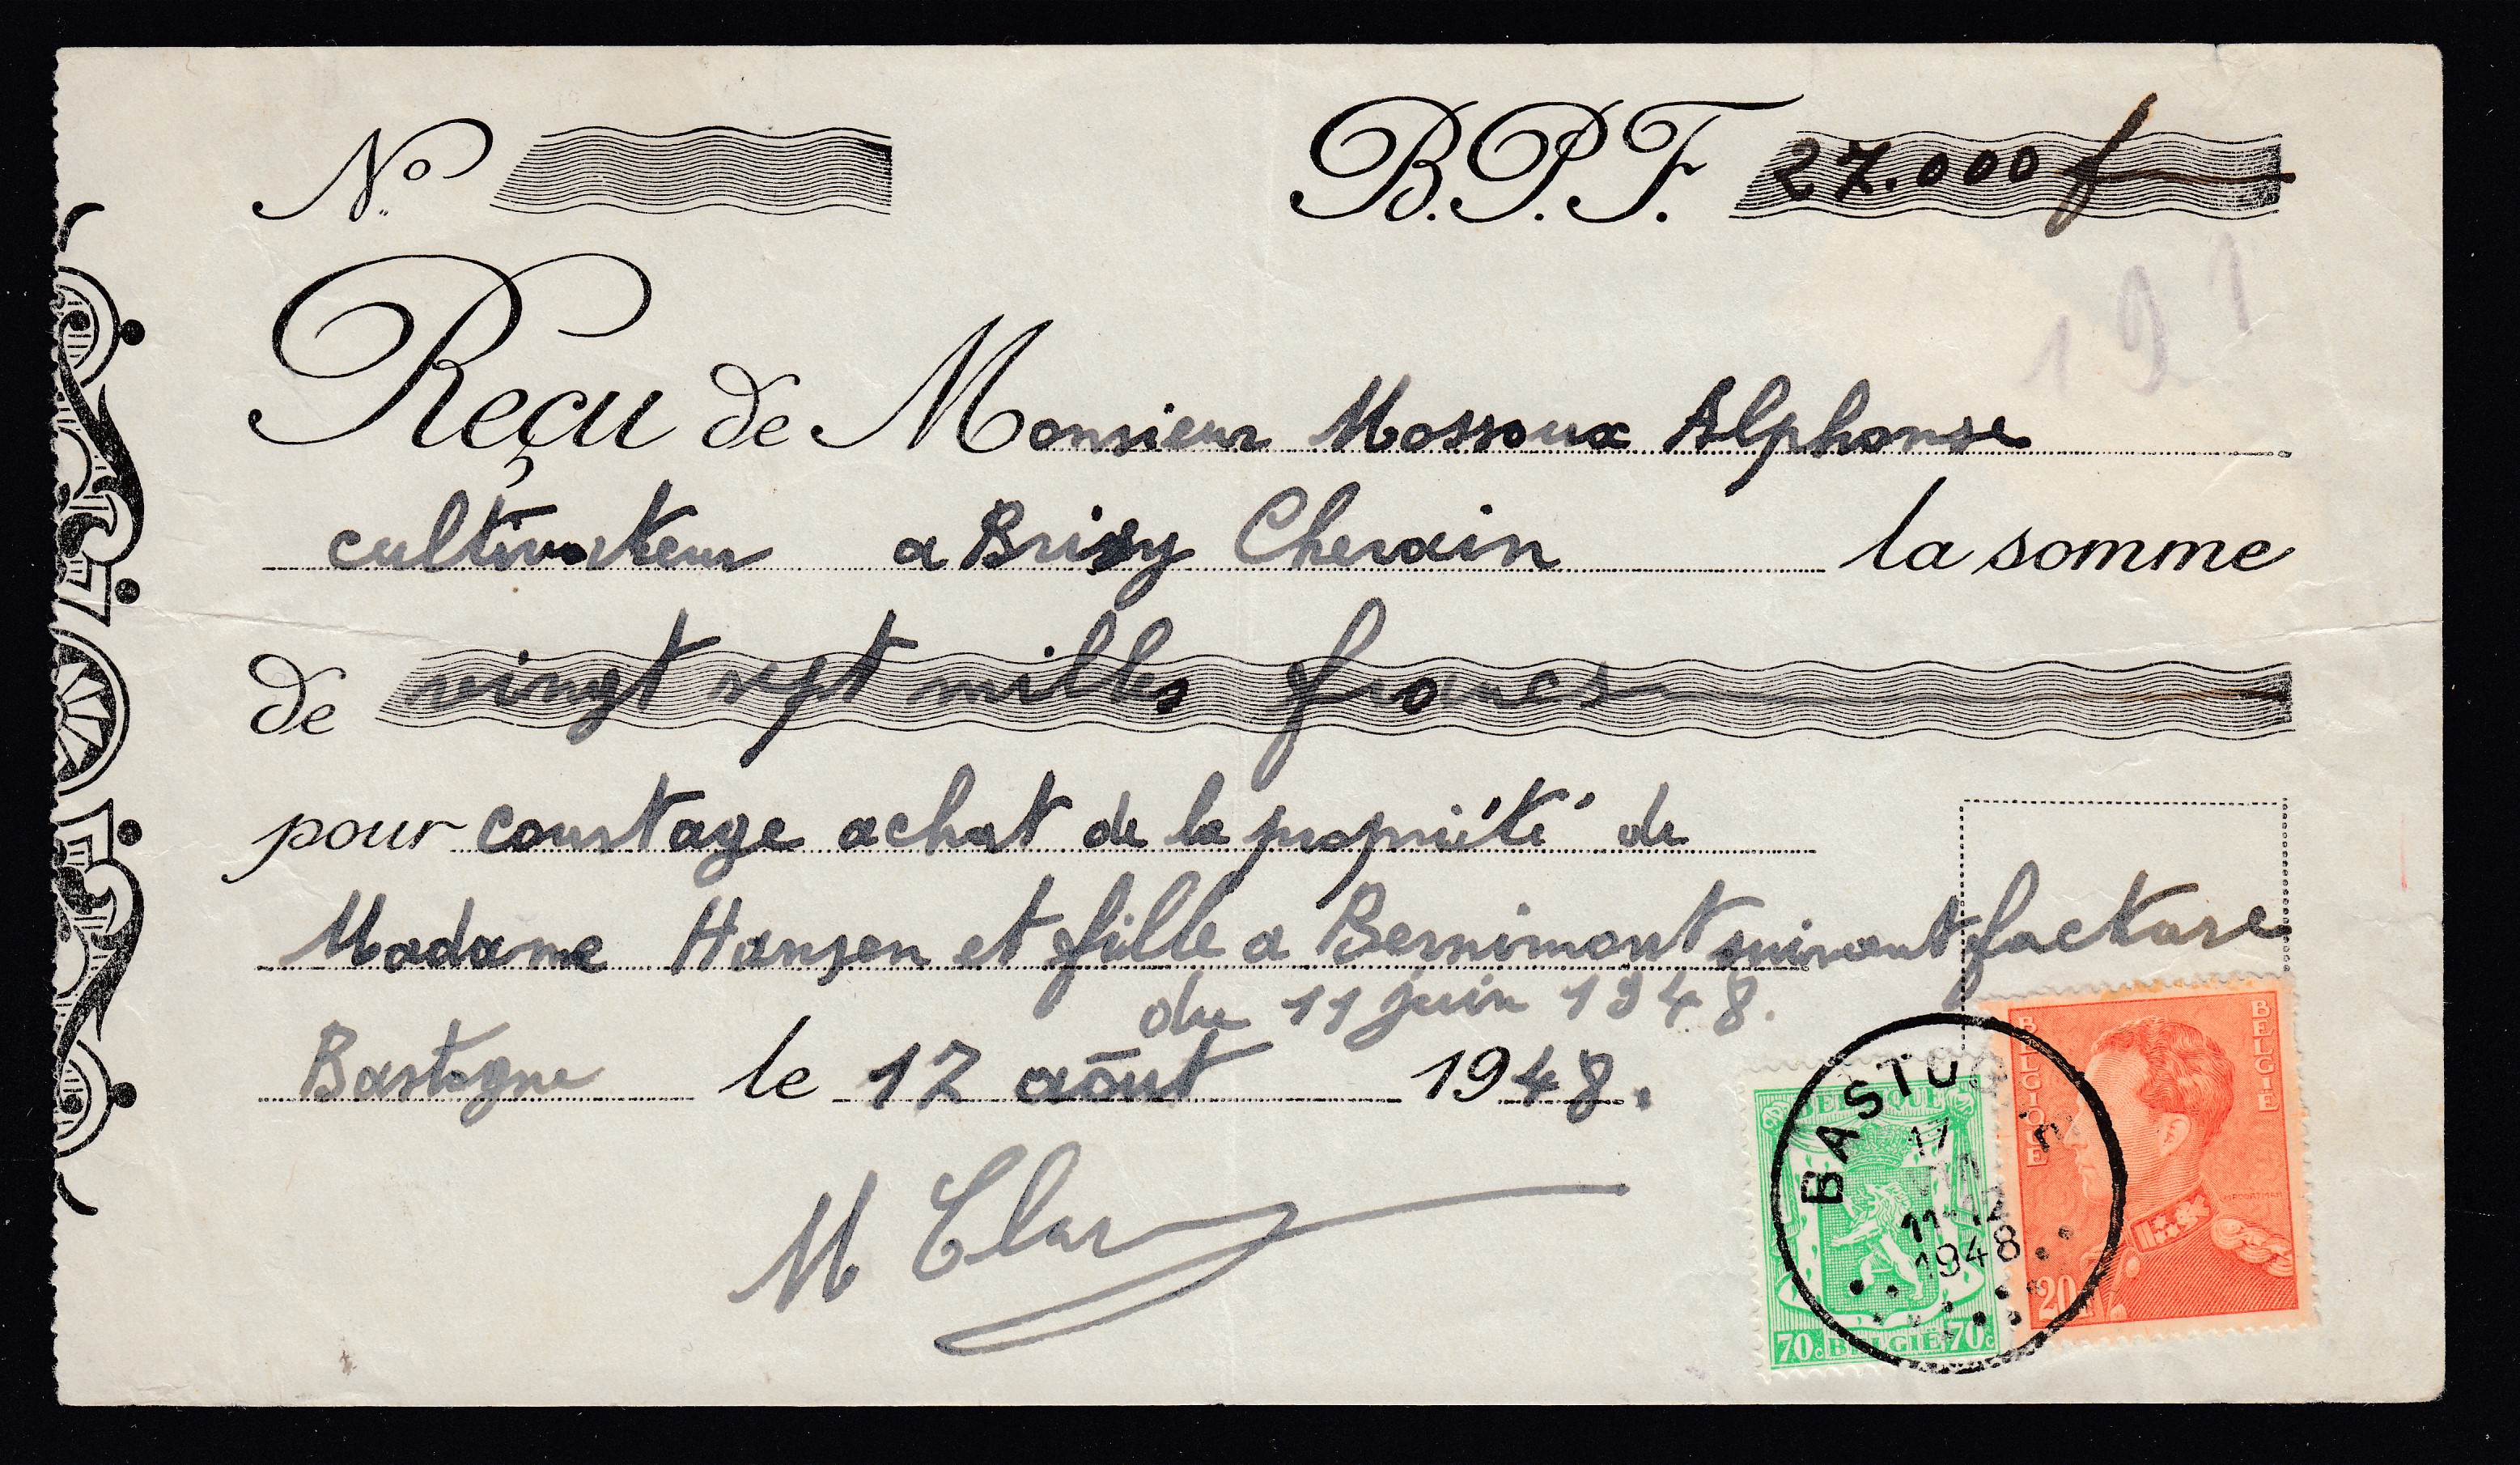 No B.P.F. 27.000 f
191
Reçu de Monsieur Mossoux Alphonse
cultivateur a Brisy Cherain la somme
de vingt sept milles francs
pour courtage achat de la propriété de
Madame Hansen et fille a Bernimont suivant facture
du 11 juin 1948.
Bastogne le 17 aôut 1948.
M
BELGIQUE
BELGIË
70c BELGIË 70c
BELGIQUE
20F
BASTOG
17
VIII
11-12
1948